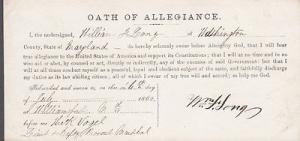 OATH OF ALLEGIANCE.
I, the undersigned, William S. Long of Washington
County, State of Maryland — do hereby solemnly swear before Almighty God, that I will bear
true allegiance to the United States of America and support its Constitution; that I will at no time
aid or abet, by counsel or act, directly or indirectly, any of the enemies of said Government; but that I
will at all times conduct myself as a peaceful, loyal and obedient subject of the same, and faithfully discharge
my duties as its law abiding citizen, all of which of my own free will and accord; so help me God.
Subscribed and sworn to, on this day of
July 186
at Williamsport
before me
Lieut & Provost Marshal
Wm S. Long